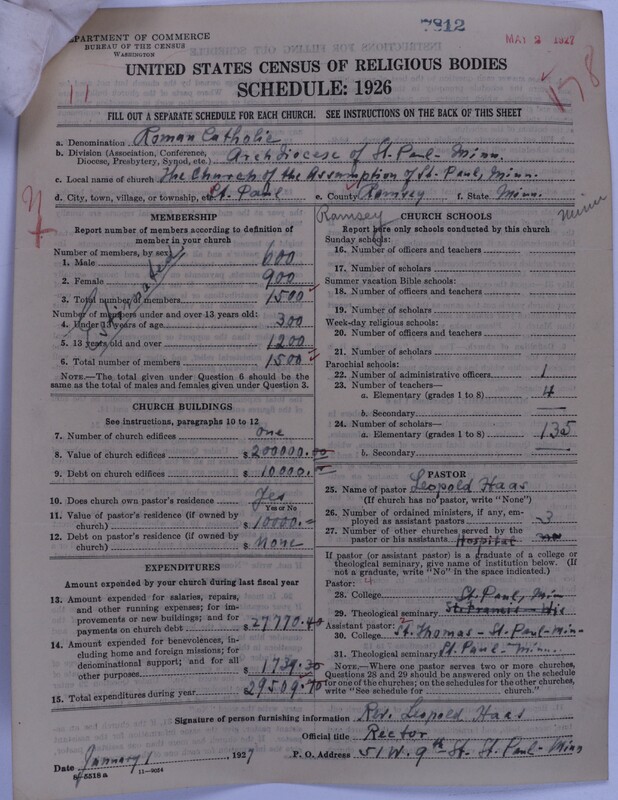 7812
DEPARTMENT OF COMMERCE
BUREAU OF THE CENSUS
WASHINGTON
MAR 2 1927
178
11
UNITED STATES CENSUS OF RELIGIOUS BODIES
SCHEDULE: 1926
FILL OUT A SEPARATE SCHEDULE FOR EACH CHURCH. SEE INSTRUCTIONS ON THE BACK OF THIS SHEET
a. Denomination Roman Catholic
b. Division (Association, Conference, Diocese, Presbytery, Synod, etc.) Archdiocese of St. Paul - Minn.
c. Local name of church The Church of the Assumption of St. Paul, Minn.
d. City, town, village, or township, etc. St. Paul e. County Ramsey f. State Minn.
Ramsey Minn
MEMBERSHIP
Report number of members according to definition of member in your church
Estimated
Number of members, by sex:
1. Male 600
2. Female 900
3. Total number of members 1500
Number of members under and over 13 years old:
4. Under 13 years of age 300
5. 13 years old and over 1200
6. Total number of members 1500
NOTE.—The total given under Question 6 should be the same as the total of males and females given under Question 3.
CHURCH BUILDINGS
See instructions, paragraphs 10 to 12
7. Number of church edifices one
8. Value of church edifices $ 200000.00
9. Debt on church edifices $ 10000.
10. Does church own pastor's residence? Yes
Yes or No
11. Value of pastor's residence (if owned by church) $ 10000.
12. Debt on pastor's residence (if owned by church) $ None
EXPENDITURES
Amount expended by your church during last fiscal year
13. Amount expended for salaries, repairs, and other running expenses; for improvements or new buildings; and for payments on church debt $ 27770.40
14. Amount expended for benevolences, including home and foreign missions; for denominational support; and for all other purposes $ 1739.30
15. Total expenditures during year $ 29509.70
CHURCH SCHOOLS
Report here only schools conducted by this church
Sunday schools:
16. Number of officers and teachers
17. Number of scholars
Summer vacation Bible schools:
18. Number of officers and teachers
19. Number of scholars
Week-day religious schools:
20. Number of officers and teachers
21. Number of scholars
Parochial schools:
22. Number of administrative officers 1
23. Number of teachers—
a. Elementary (grades 1 to 8) 4
b. Secondary —
24. Number of scholars—
a. Elementary (grades 1 to 8) 135
b. Secondary —
PASTOR
25. Name of pastor Leopold Haas
(If church has no pastor, write "None")
26. Number of ordained ministers, if any, employed as assistant pastors 3
27. Number of other churches served by the pastor or his assistants Hospital no
If pastor (or assistant pastor) is a graduate of a college or theological seminary, give name of institution below. (If not a graduate, write "No" in the space indicated.)
Pastor:
28. College St. Paul, Min
29. Theological seminary St. Francis - Wis
Assistant pastor:
30. College St. Thomas - St. Paul - Min-
31. Theological seminary St. Paul - Minn.
NOTE.—Where one pastor serves two or more churches, Questions 28 and 29 should be answered only on the schedule for one of the churches; on the schedules for the other churches, write "See schedule for ____ church."
Signature of person furnishing information Rev. Leopold Haas
Official title Rector
Date January 1, 1927 P. O. Address 51 W. 9th - St. St. Paul - Minn
8-5518 a 11-9024